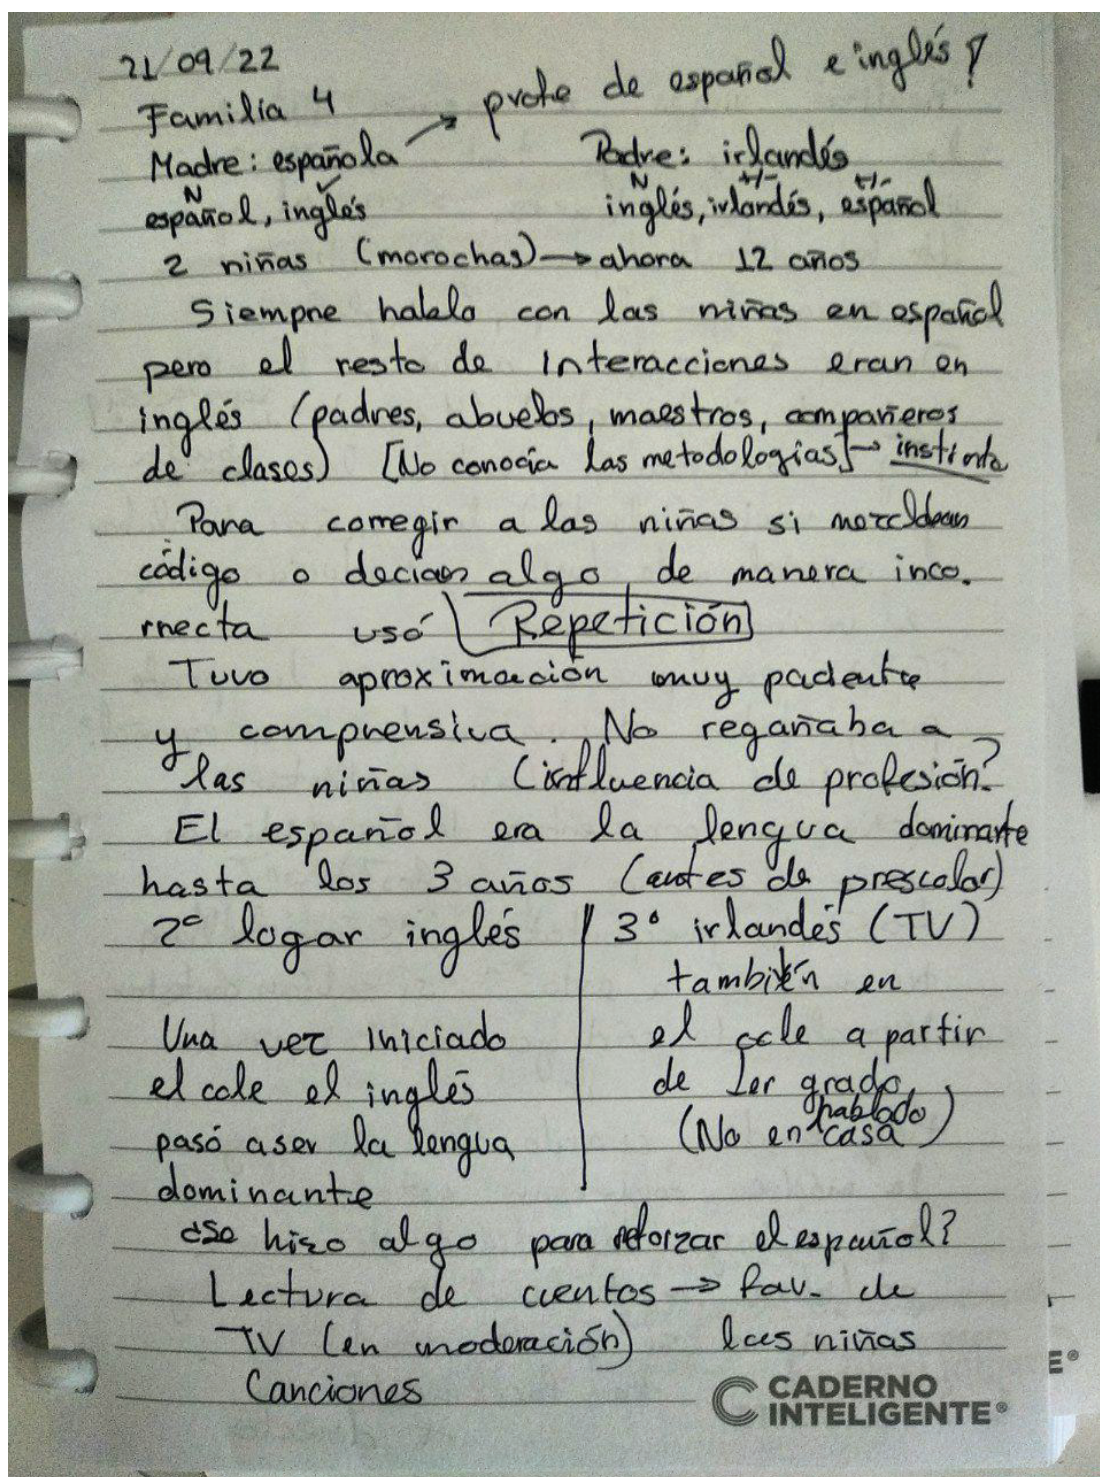 21/09/22
Familia 4 → profe de español e inglés!
Madre: española Padre: irlandés
N ✓ N +/- +/-
español, inglés inglés, irlandés, español
2 niñas (morochas) → ahora 12 años
Siempre hablo con las niñas en español
pero el resto de Interacciones eran en
inglés (padres, abuelos, maestros, compañeros
de clases) [No conocía las metodologías] → instinto
Para corregir a las niñas si mezclaban
código o decían algo de manera inco.
rrecta usó Repetición
Tuvo aproximación muy paciente
y comprensiva. No regañaba a
las niñas (influencia de profesión?
El español era la lengua dominante
hasta los 3 años (antes de prescolar)
2º logar inglés
Una vez Iniciado
el cole el inglés
pasó a ser la lengua
dominante
3º irlandés (TV)
también en
el cole a partir
de 1er grado
(No hablado en casa)
¿Se hizo algo para reforzar el español?
Lectura de cuentos → fav. de
TV (en moderación) las niñas
Canciones
CADERNO
INTELIGENTE®